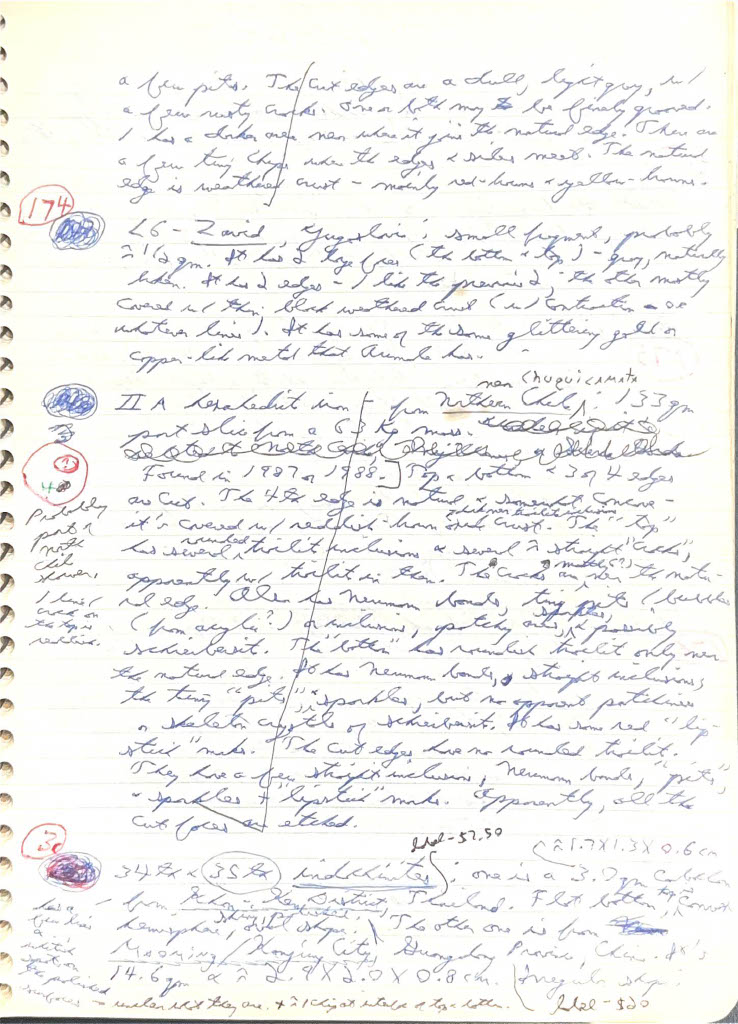 a few pits. The cut edges are a dull, light gray, w/
a few rusty cracks. One or both may be finely grooved.
1 has a darker area near where it joins the natural edge. There are
a few tiny chips where the edges & sides meet. The natural
edge is weathered crust - mainly red-brown & yellow-brown.
174
L6 - Zavid, Yugoslavia; small fragment, probably
≈ 1/2 gm. It has 2 large faces (the bottom & top) - gray, naturally
broken. It has 2 edges - 1 like the previous 2, the other mostly
covered w/ thin, black weathered crust (w/ contraction - or
whatever lines). It has some of the same glittering gold or
copper-like metal that has.
near CHUQUICAMATA
II A hexahedrite iron - from Northern Chile; 133 gm
part slice from a 63 Kg mass.
Found in 1987 or 1988. Top & bottom & 3 of 4 edges
are cut. The 4th edge is natural & somewhat concave -
it's covered w/ reddish-brown crust. The "top"
has several rounded troilite inclusions & several ≈ straight "cracks",
apparently w/ troilite in them. The cracks are mostly(?) near the natu-
ral edge. Also has Neumann bands, tiny pits (bubbles
(from acrylic?) or inclusions, patchy areas, sparkles, & possibly
schreibersite. The "bottom" has roundish troilite only near
the natural edge. It has Neumann bands, straight inclusions,
the tiny "pits", & sparkles, but no apparent patchiness
or skeleton crystals of schreibersite. It has some red "lip-
stick" marks. The cut edges have no rounded troilite.
They have a few straight inclusions, Neumann bands, "pits",
& sparkles + "lipstick" marks. Apparently, all the
cut faces are etched.
Probably
part of
North
Chile
shower.
1 line/
crack on
the top is
reddish.
lbl-57.50
≈ 1.7 X 1.3 X 0.6 cm
34th & 35th indochinites; one is a 3.7 gm cabochon
from Khon-Kaen District, Thailand. Flat bottom, convex top
hemisphere, oval shape. The other one is from
Maoming/Konjing City, Guangdong Province, China. It's
14.6 gm & ≈ 2.9 X 2.0 X 0.8 cm. Irregular shape.
lbl-$20
has a
few lines
a
whitish
spot on
the polished
surfaces - unclear what they are.